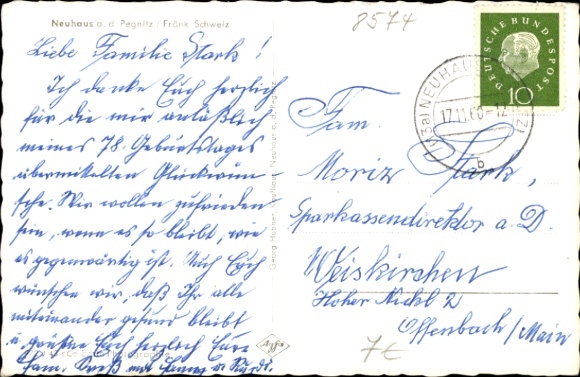 Neuhaus a. d. Pegnitz / Fränk Schweiz
8574
Liebe Familie Stark!
Ich danke Euch herzlich
für die mir anläßlich
meines 78. Geburtstages
übermittelten Glückwün-
sche. Wir wollen zufrieden
sein, wenn es so bleibt, wie
es gegenwärtig ist. Auch Euch
wünschen wir, daß Ihr alle
miteinander gesund bleibt
u. grüßen Euch herzlich Eure
Fam.
Georg Hübner, Neuhaus a. d. Pegnitz
Agfa
DEUTSCHE BUNDESPOST
10
(13a) NEUHAUS
17.11.60
b
Fam.
Moriz Stark,
Sparkassendirektor a. D.
Weiskirchen
Hoher Nickl 2
Offenbach/Main
7€